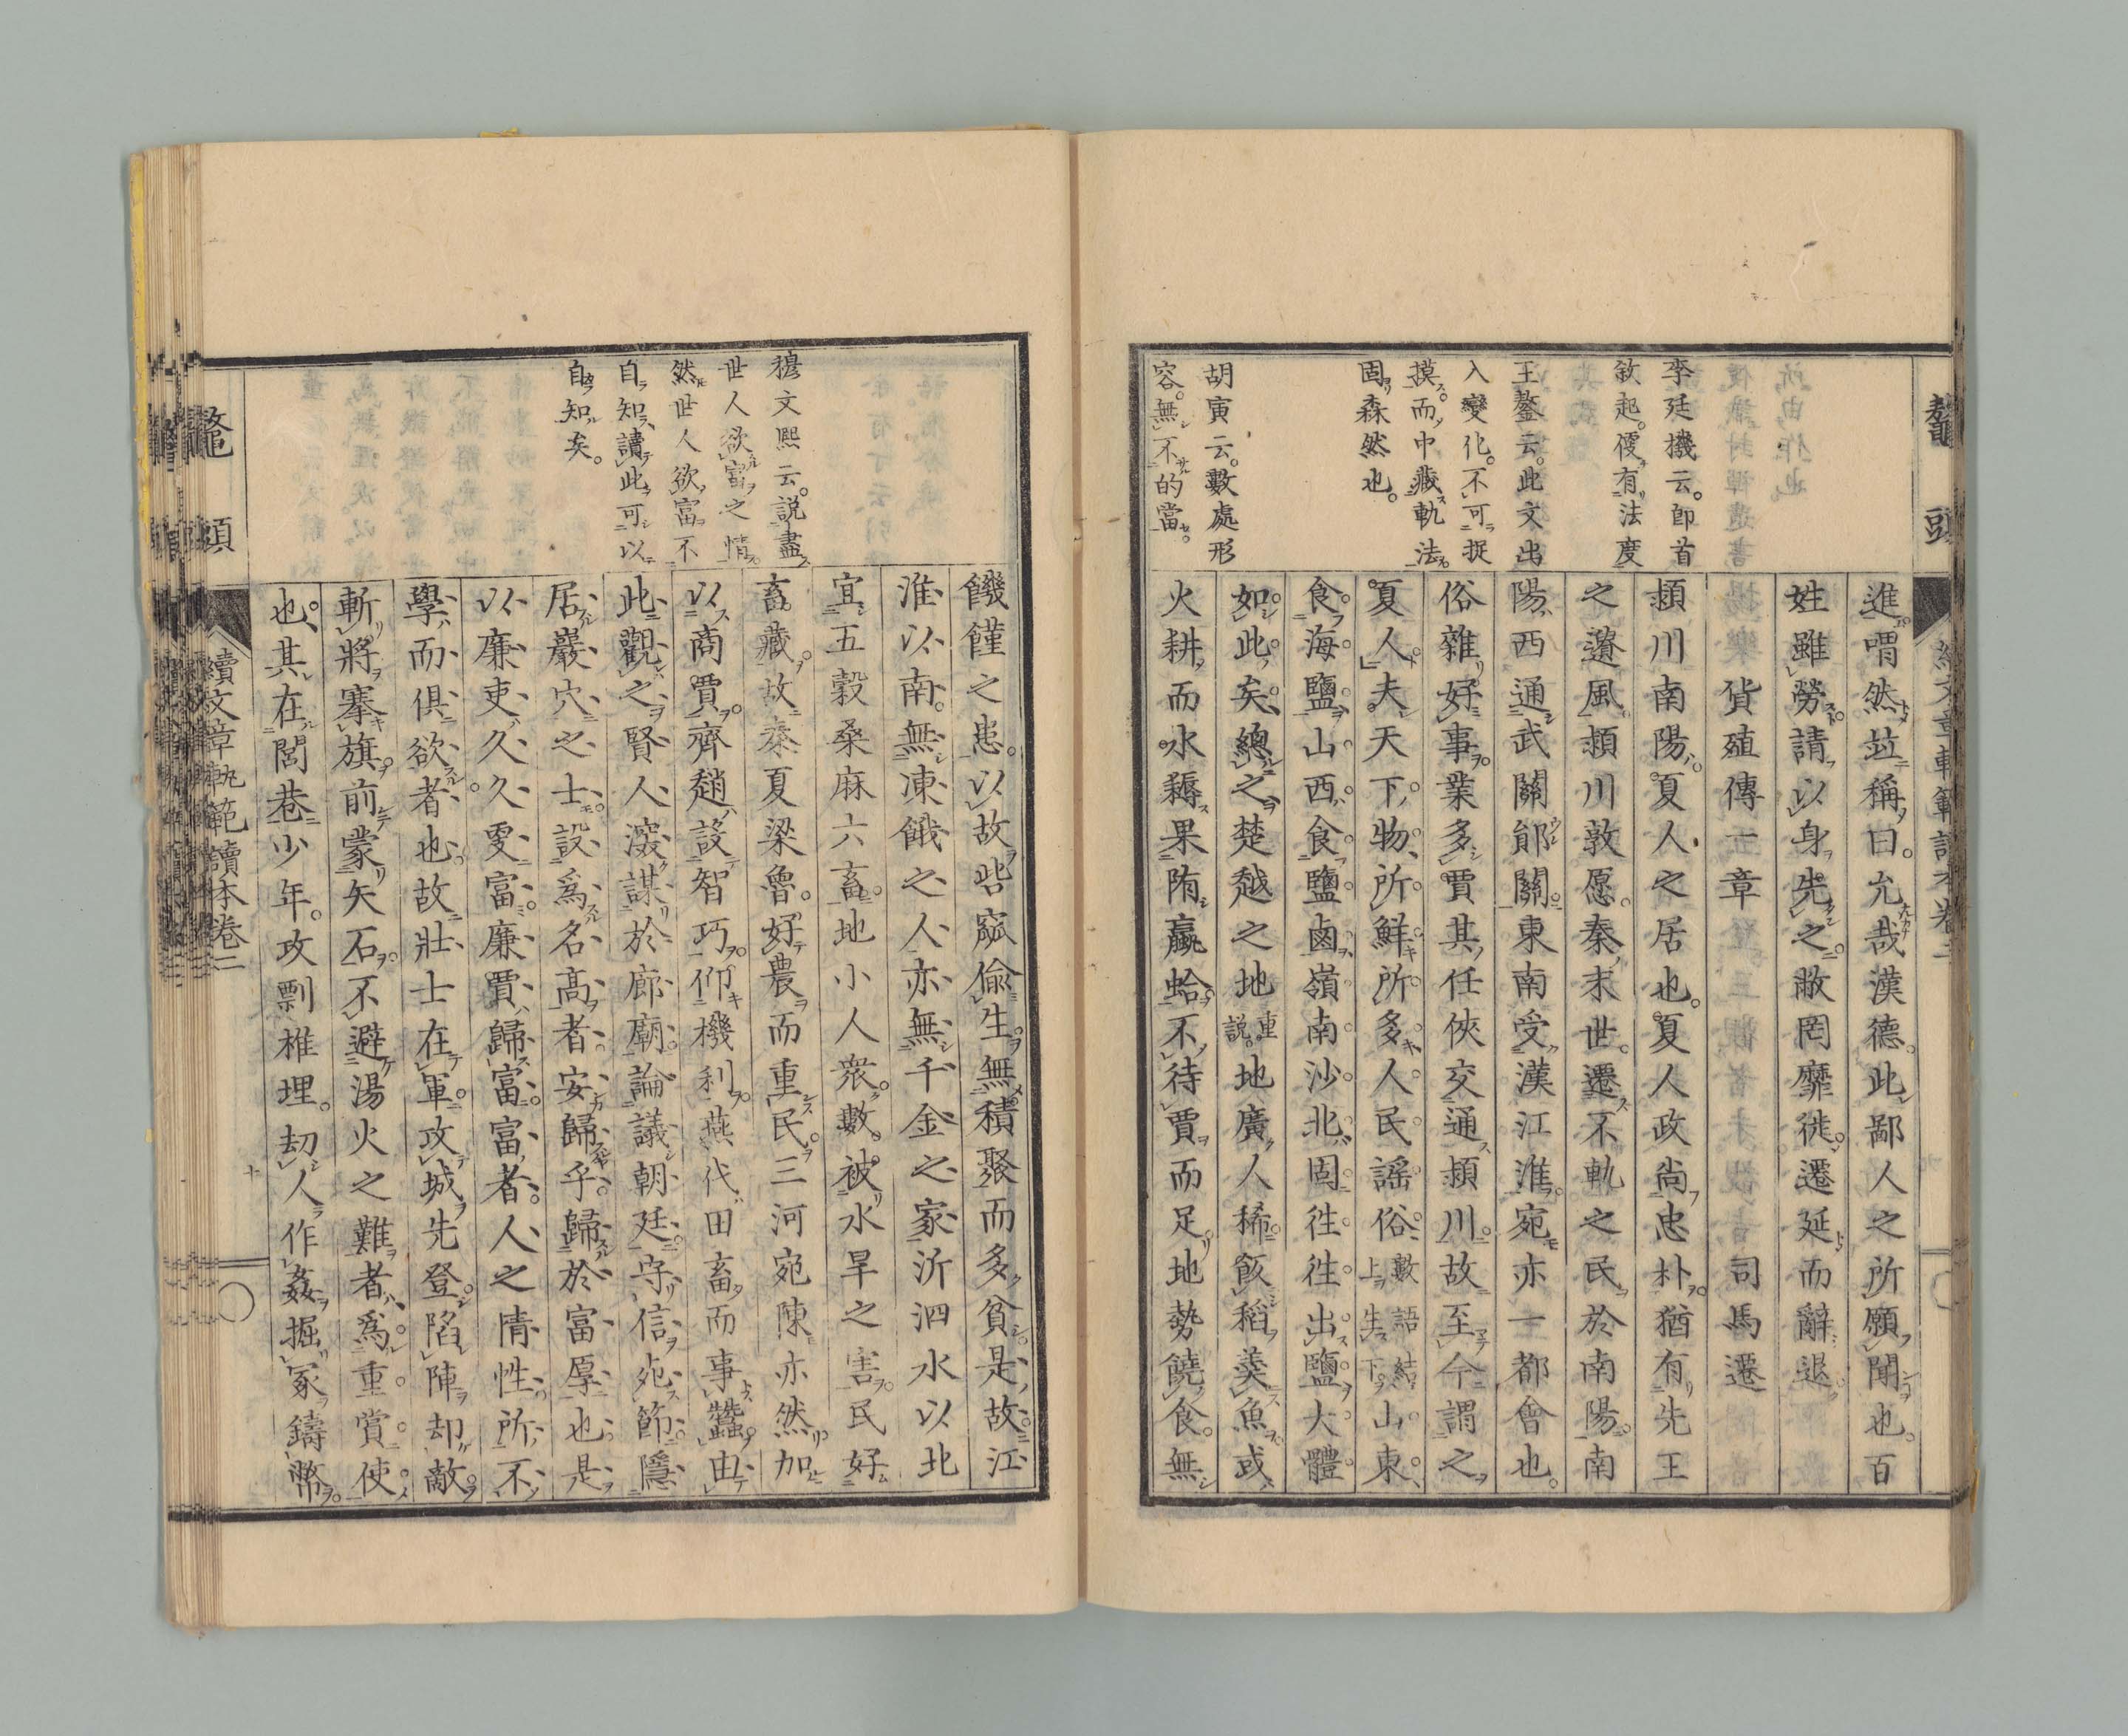 鼇頭
續文章軌範讀本卷二
李廷機云。卽首
敘起。便有法度
王鏊云。此文出
入變化。不可捉
摸。而中藏軌法
固森然也。
胡寅云。數處形
容。無不的當。
進。喟然竝稱曰。允哉漢德。此鄙人之所願聞也。百
姓雖勞。請以身先之。敝罔靡徙。遷延而辭退
貨殖傳二章 司馬遷
潁川南陽。夏人之居也。夏人政尙忠朴。猶有先王
之遺風。潁川敦愿。秦末世。遷不軌之民於南陽。南
陽西通武關鄖關。東南受漢江淮。宛亦一都會也。
俗雜好事。業多賈。其任俠交通潁川。故至今謂之
夏人。夫天下物所鮮所多。人民謠俗。數語結上生下山東
食海鹽。山西食鹽鹵。嶺南沙北。固徃徃出鹽。大體
如此矣。總之楚越之地重說。地廣人稀。飯稻羹魚。或
火耕而水耨。果陏蠃蛤。不待賈而足。地勢饒食。無
饑饉之患。以故呰窳偷生。無積聚而多貧。是故江
淮以南。無凍餓之人。亦無千金之家。沂泗水以北
宜五穀桑麻六畜。地小人衆。數被水旱之害。民好
畜藏。故秦夏梁魯。好農而重民。三河宛陳亦然。加
以商賈。齊趙設智巧。仰機利。燕代田畜而事蠶。由
此觀之。賢人深謀於廊廟。論議朝廷。守信死節。隱
居巖穴之士。設爲名高者。安歸乎。歸於富厚也。是
以廉吏久。久更富。廉賈歸富。富者。人之情性。所不
學而俱欲者也。故壯士在軍。攻城先登。陷陣却敵。
斬將搴旗。前蒙矢石。不避湯火之難者。爲重賞使
也。其在閭巷少年。攻剽椎埋。刧人作姦。掘冢鑄幣。
穆文熙云。說盡
世人欲富之情。
然世人欲富不
自知。讀此可以
自知矣。
鼇頭
續文章軌範讀本卷二
十